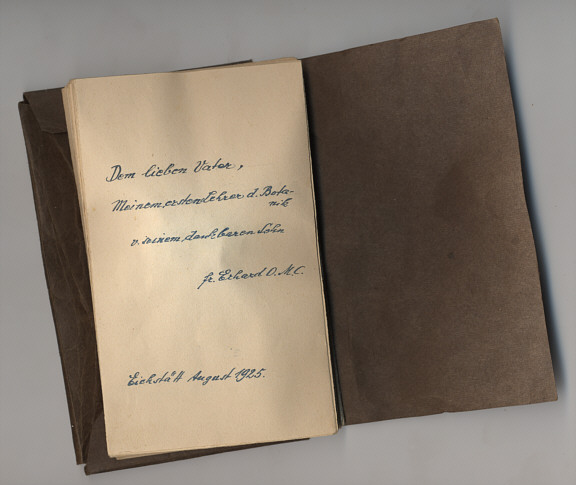 Dem lieben Vater,
Meinem ersten Lehrer d. Bota-
nik
v. seinem dankbaren Sohn
fr. Erhard O.M.C.
Eichstätt August 1925.